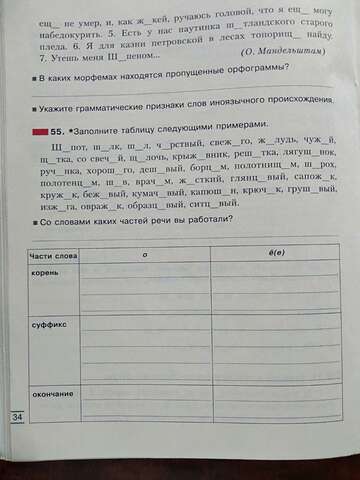 ещ__ не умер, и, как ж__кей, ручаюсь головой, что я ещ__ могу
набедокурить. 5. Есть у нас паутинка ш__тландского старого
пледа. 6. Я для казни петровской в лесах топорищ__ найду.
7. Утешь меня Ш__пеном...
(О. Мандельштам)
■ В каких морфемах находятся пропущенные орфограммы?
■ Укажите грамматические признаки слов иноязычного происхождения.
55. *Заполните таблицу следующими примерами.
Ш__пот, ш__лк, ш__л, ч__рствый, свеж__го, ж__лудь, чуж__й,
щ__тка, со свеч__й, щ__лочь, крыж__вник, реш__тка, лягуш__нок,
руч__нка, хорош__го, деш__вый, борщ__м, полотнищ__м, ш__рох,
полотенц__м, ш__в, врач__м, ж__сткий, глянц__вый, сапож__к,
круж__к, беж__вый, кумач__вый, капюш__н, крюч__к, груш__вый,
изж__га, овраж__к, образц__вый, ситц__вый.
■ Со словами каких частей речи вы работали?
Части слова о ё(е)
корень
суффикс
окончание
34